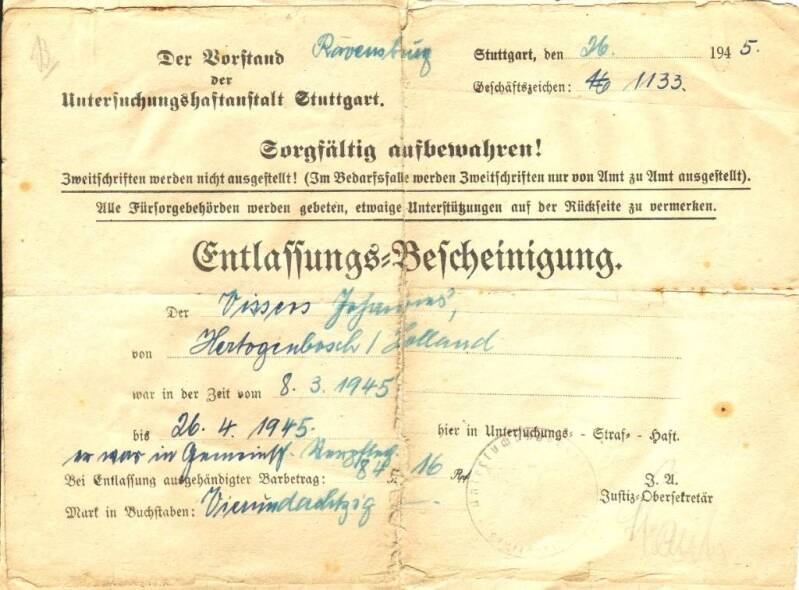 B
Der Vorstand Ravensburg
der
Untersuchungshaftanstalt Stuttgart.
Stuttgart, den 26. 1945.
Geschäftszeichen: 1133.
Sorgfältig aufbewahren!
Zweitschriften werden nicht ausgestellt! (Im Bedarfsfalle werden Zweitschriften nur von Amt zu Amt ausgestellt).
Alle Fürsorgebehörden werden gebeten, etwaige Unterstützungen auf der Rückseite zu vermerken.
Entlassungs-Bescheinigung.
Der Vissers Johannes,
von Hertogenbosch / Holland
war in der Zeit vom 8.3.1945
bis 26.4.1945. hier in Untersuchungs- - Straf- - Haft.
er war in Gemeinsch.
Bei Entlassung ausgehändigter Barbetrag: 84 16
Mark in Buchstaben: Vierundachtzig
J. A.
Justiz-Obersekretär